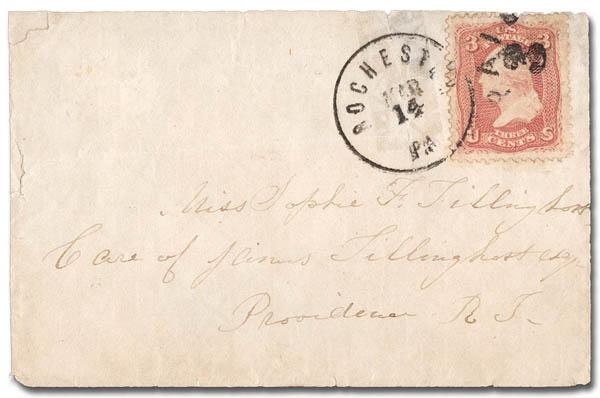 ROCHESTER
MAR
14
PA
PAID
3
3 U.S. 3
POSTAGE
U S
THREE
CENTS
Miss Sophie F. Tillinghast
Care of James Tillinghast esq.
Providence R I